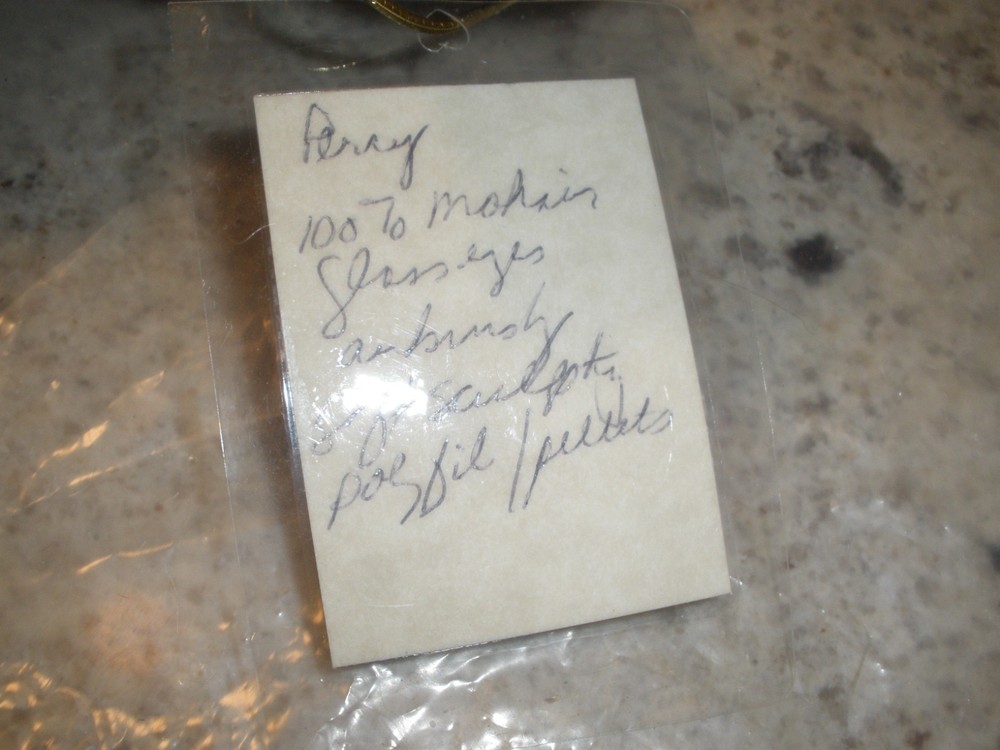 Perry
100% Mohair
glass eyes
airbrush
sculpt
polyfil / pellets